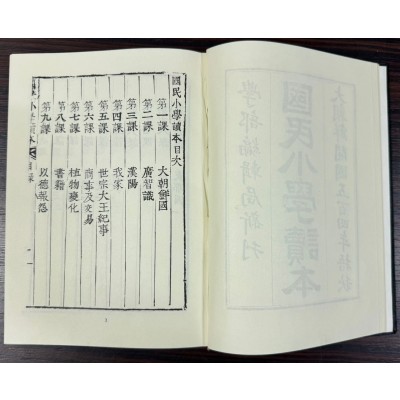 國民小學讀本目次
第一課 大朝鮮國
第二課 廣智識
第三課 漢陽
第四課 我家
第五課 世宗大王紀事
第六課 商事及交易
第七課 植物變化
第八課 書籍
第九課 以德報怨
小學讀本
國民小學讀本
學部編輯局新刊